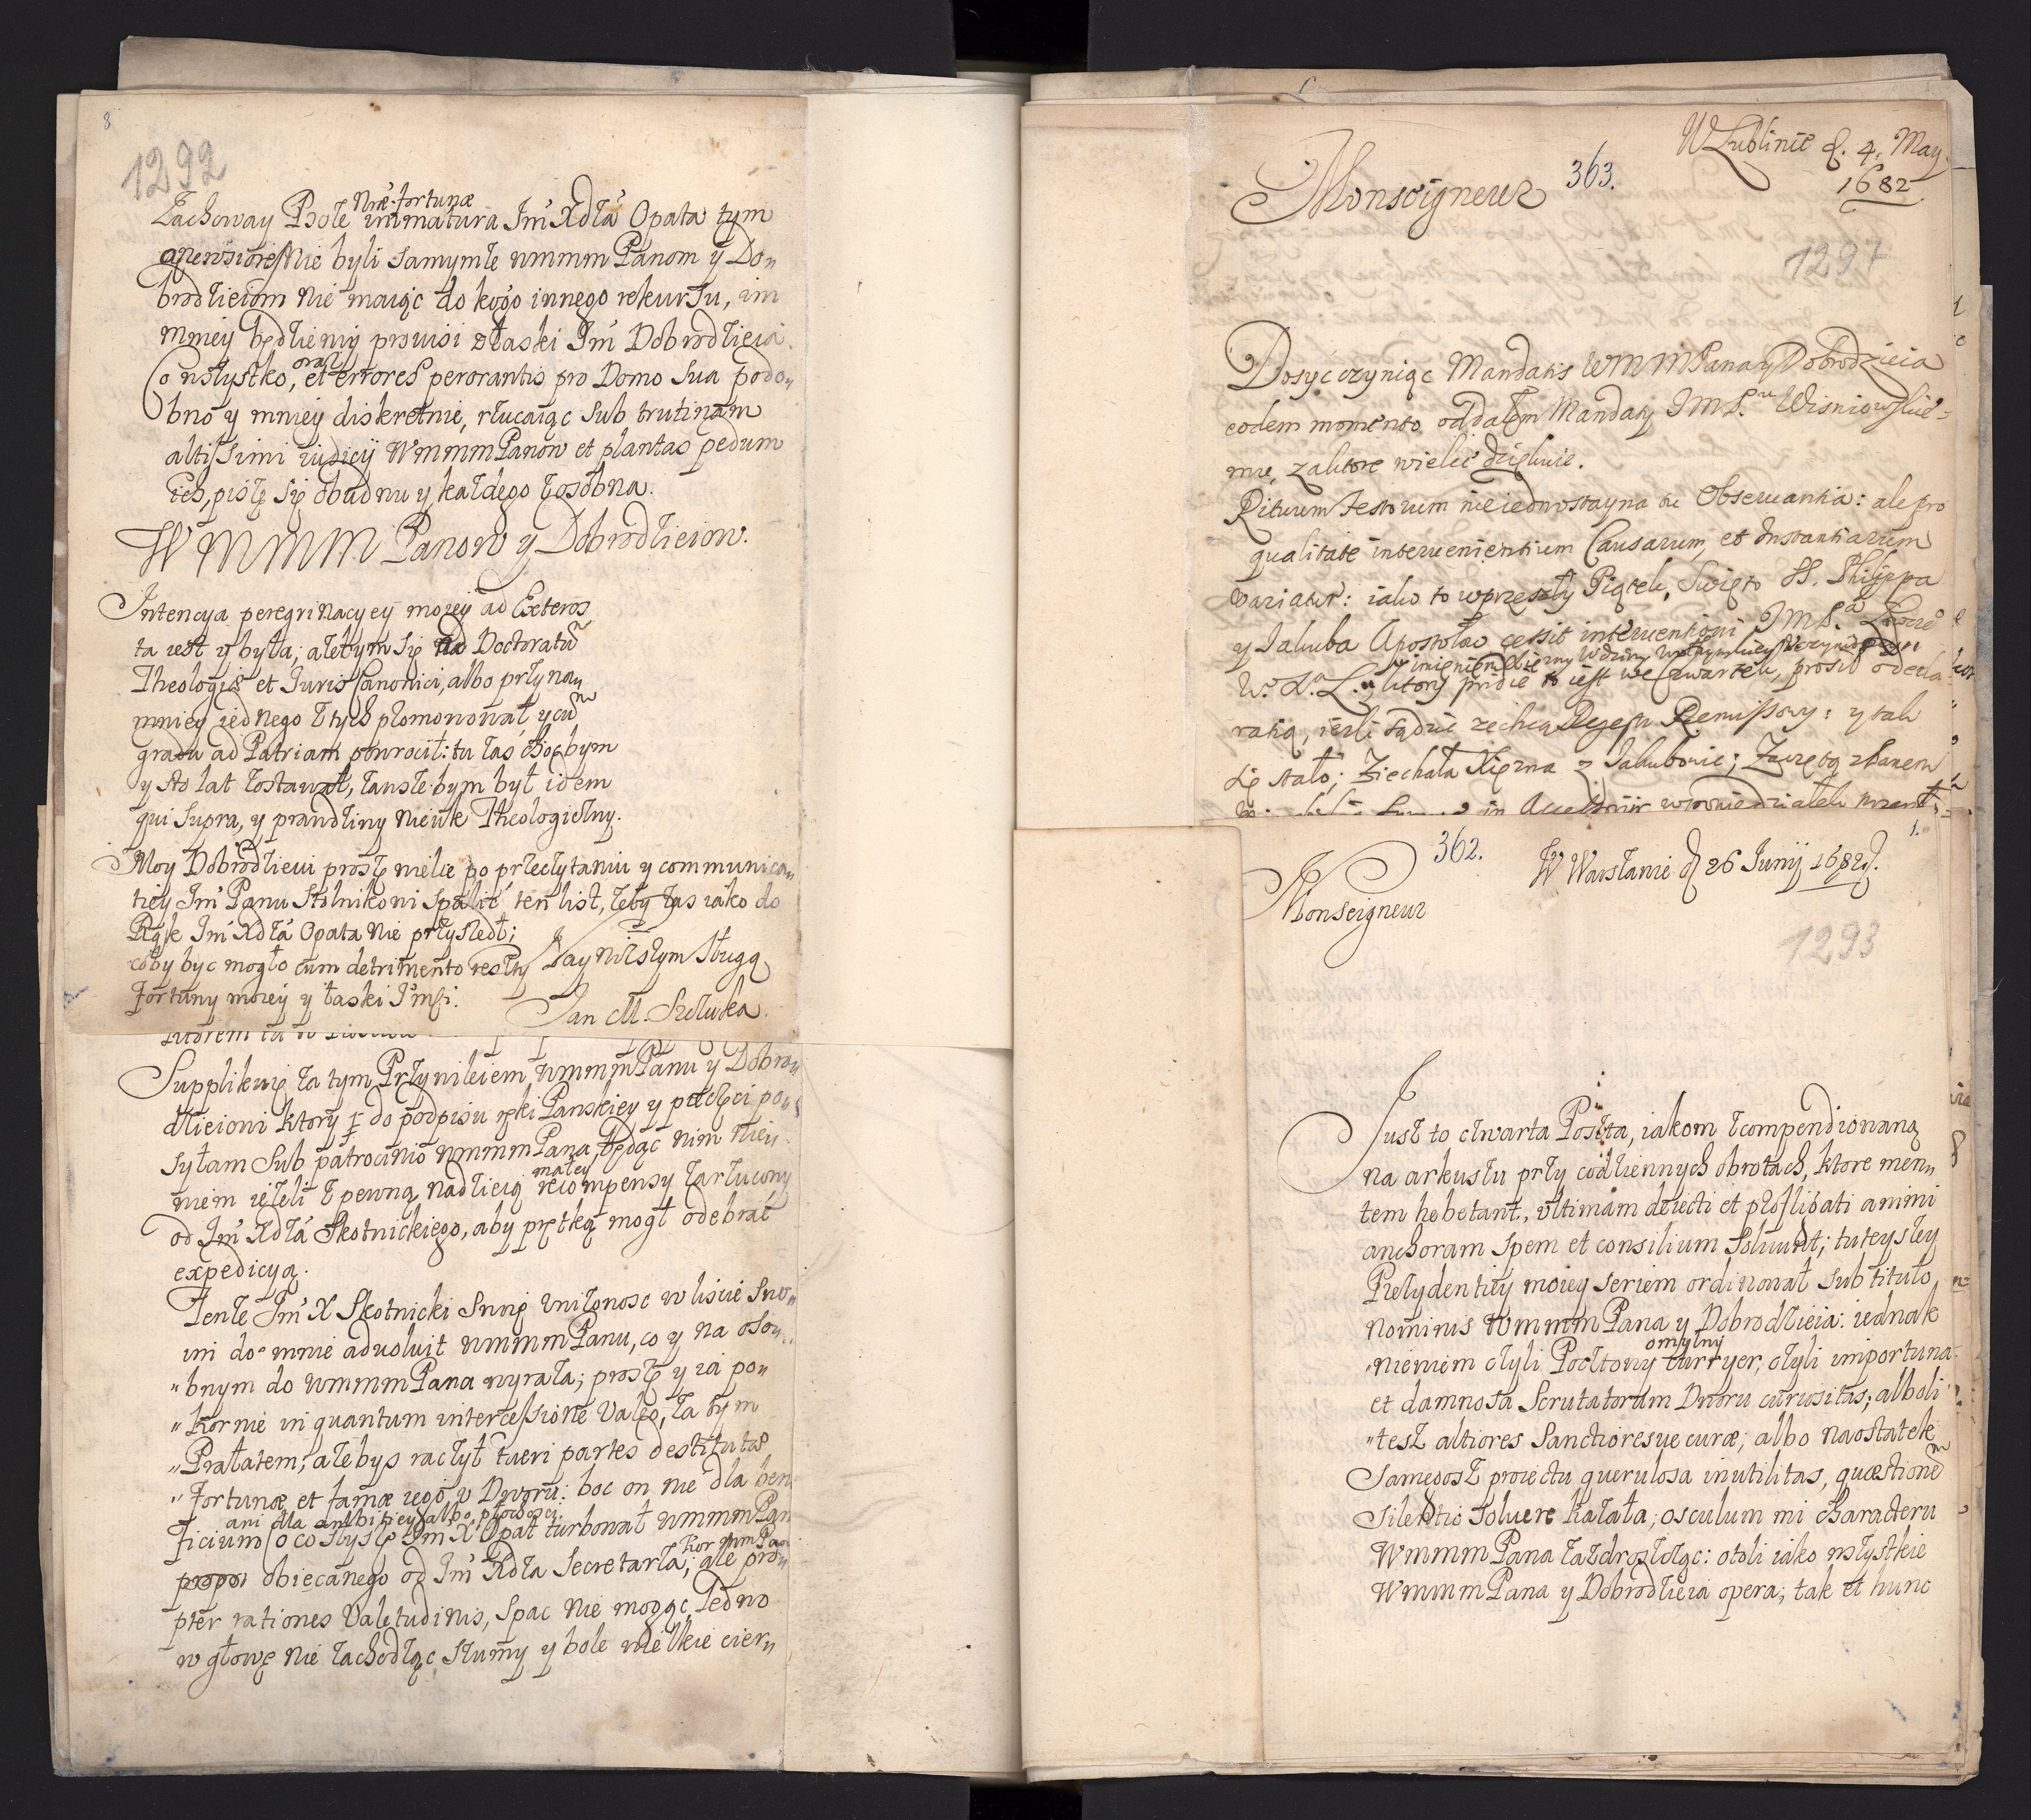 8
1292
Nræ fortunæ
Zachoway Boże immatura Jm̃ Xdza Opata tym
byli samymże wmmm Panom y Do„
brodzieiom nie maiąc do kogo innego rekursu, im
mniey będziemy prowisi z łaski Jm̃ Dobrodzieia.
oraz
Co wszystko, et errores perorantis pro Domo sua podo„
bno y mniey diskretnie, rzucaiąc sub trutinam
altissimi iudicij WmmmPanow et plantas pedum
Ich, piszę się obudwu y każdego zosobna.
W M M M Panow y Dobrodzieiow.
Intencya peregrinacyey moiey ad Exteros
ta iest y była, ażebym się ad Doctoratũ
Theologiæ et Juris Canonici, albo przynay
mniey iednego z tych promonował, y cũ
gradu ad Patriam powrocił: tu zas choćbym
y sto lat zostawał, zawsze bym był idem
qui supra, y prawdziwy nieuk Theologiczny.
Moy Dobrodzieiu proszę wielce po przeczytaniu y communica„
tiey Jm̃ Panu Stolnikowi spalić ten list, żeby zas iako do
Rąk Jm̃ Xdza Opata nie przyszedł;
coby byc mogło cum detrimento reszty
fortuny moiey y łaski Jmsci.
Nayniższym sługą
Jan M. Szeluka
Supplikuię za tym Przywileiem wmmmPanu y Dobro„
dzieiowi ktory do podpisu ręki Panskiey y pieczęci po„
syłam sub patrocinio wmmmPana, będąc nim nieu
małey
wiem ieżeli z pewną nadzieią recompensy zarzucony
od Jm̃ Xdza Skotnickiego, aby prętką mogł odebrać
expedicyą.
Tenże Jm̃ X Skotnicki swoię uniżonosc w liscie swo„
im do mnie advoluit wmmmPanu, co y na oso„
„bnym do wmmmPana wyraża; proszę y ia po„
„kornie in quantum intercessione valeo, za tym
„Prałatem, ażebys raczył tueri partes destitutæ
„Fortunæ et famæ iego v Dworu: boc on nie dla ben
ani dla ambitiey albo płochosci
ficium (o co słyszę Jm̃ X Opat turbował wmmmPan
obiecanego od Jm̃ Xdza Secretarza; ale pro„
pter rationes valetudinis, spac nie mogąc, Jedno
w głowę nie zachodząc szumy y bole wielkie cier„
W Lublinie d. 4. May
1682
363.
Monseigneur
1297
Dosyć czyniąc Mandatis WMMPana y Dobrodzieia
eodem momento oddałem Mandaty JMP.nu Wisniowskie=
mu, zaktore wielce dziękuie.
Rituum Festorum nieiednostayna tu Observantia: ale pro
qualitate intervenientium Causarum, et Instantiarum
variatur: iako to wprzeszły Piątek, Swięto SS. Philippa
y Jakuba Apostołow cessit interventioni JMP.a
ktory pridie to iest we Czwartek, prosił o decla
ratią, iesli sądzić zechcą Regestr Remissowy: y tak
się stało; Ziechała Xiężna z Jakubowic;
362.
1.
W Warszawie d 26 Junij 1682.
Monseigneur
1293
Jusz to czwarta Poszta, iakom zcompendiowaną
na arkuszu przy codziennych obrotach, ktore men„
tem hebetant, vltimam deiecti et profligati animi
anchoram spem et consilium soluunt; tuteyszey
Presydentiey moiey seriem ordinował sub titulo
nominis WmmmPana y Dobrodzieia: iednak
omylny
„niewiem czyli Pocztowy curryer, czyli importuna
et damnosa scrutatorum Dworu curiositas; alboli
„tesz altiores sanctioresque curæ; albo naostatek
samegosz proiectu querulosa inutilitas, quæstionẽ
silentio soluere kazała; osculum mi characteru
WmmmPana zazdroszcząc: otoli iako wszystkie
WmmmPana y Dobrodzieia opera; tak et hunc